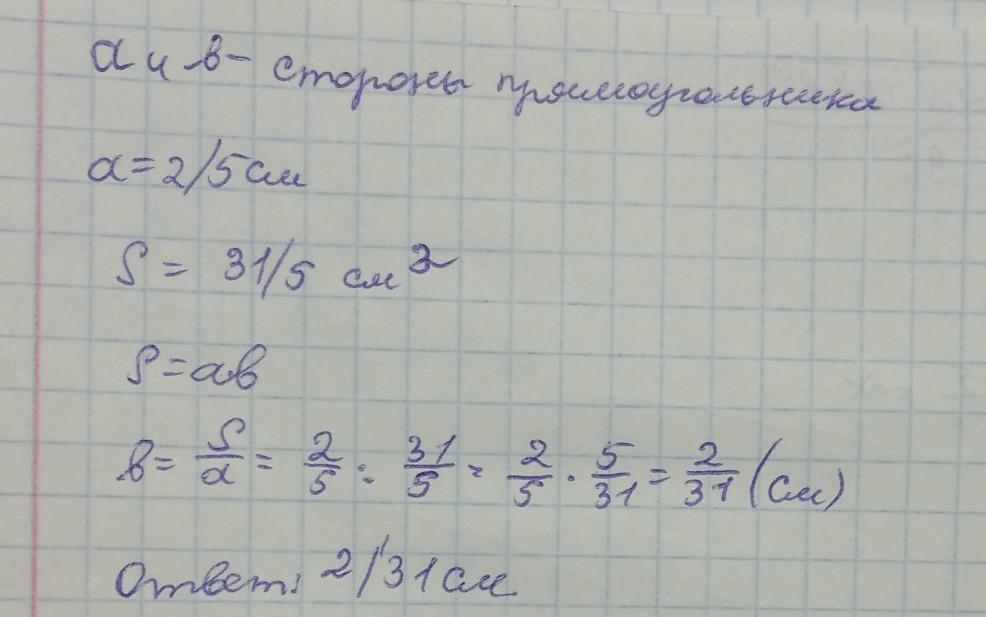 a и в - стороны прямоугольника
a = 2/5 см
S = 31/5 см²
S = ав
в = S/a = 2/5 : 31/5 = 2/5 · 5/31 = 2/31 (см)
Ответ: 2/31 см